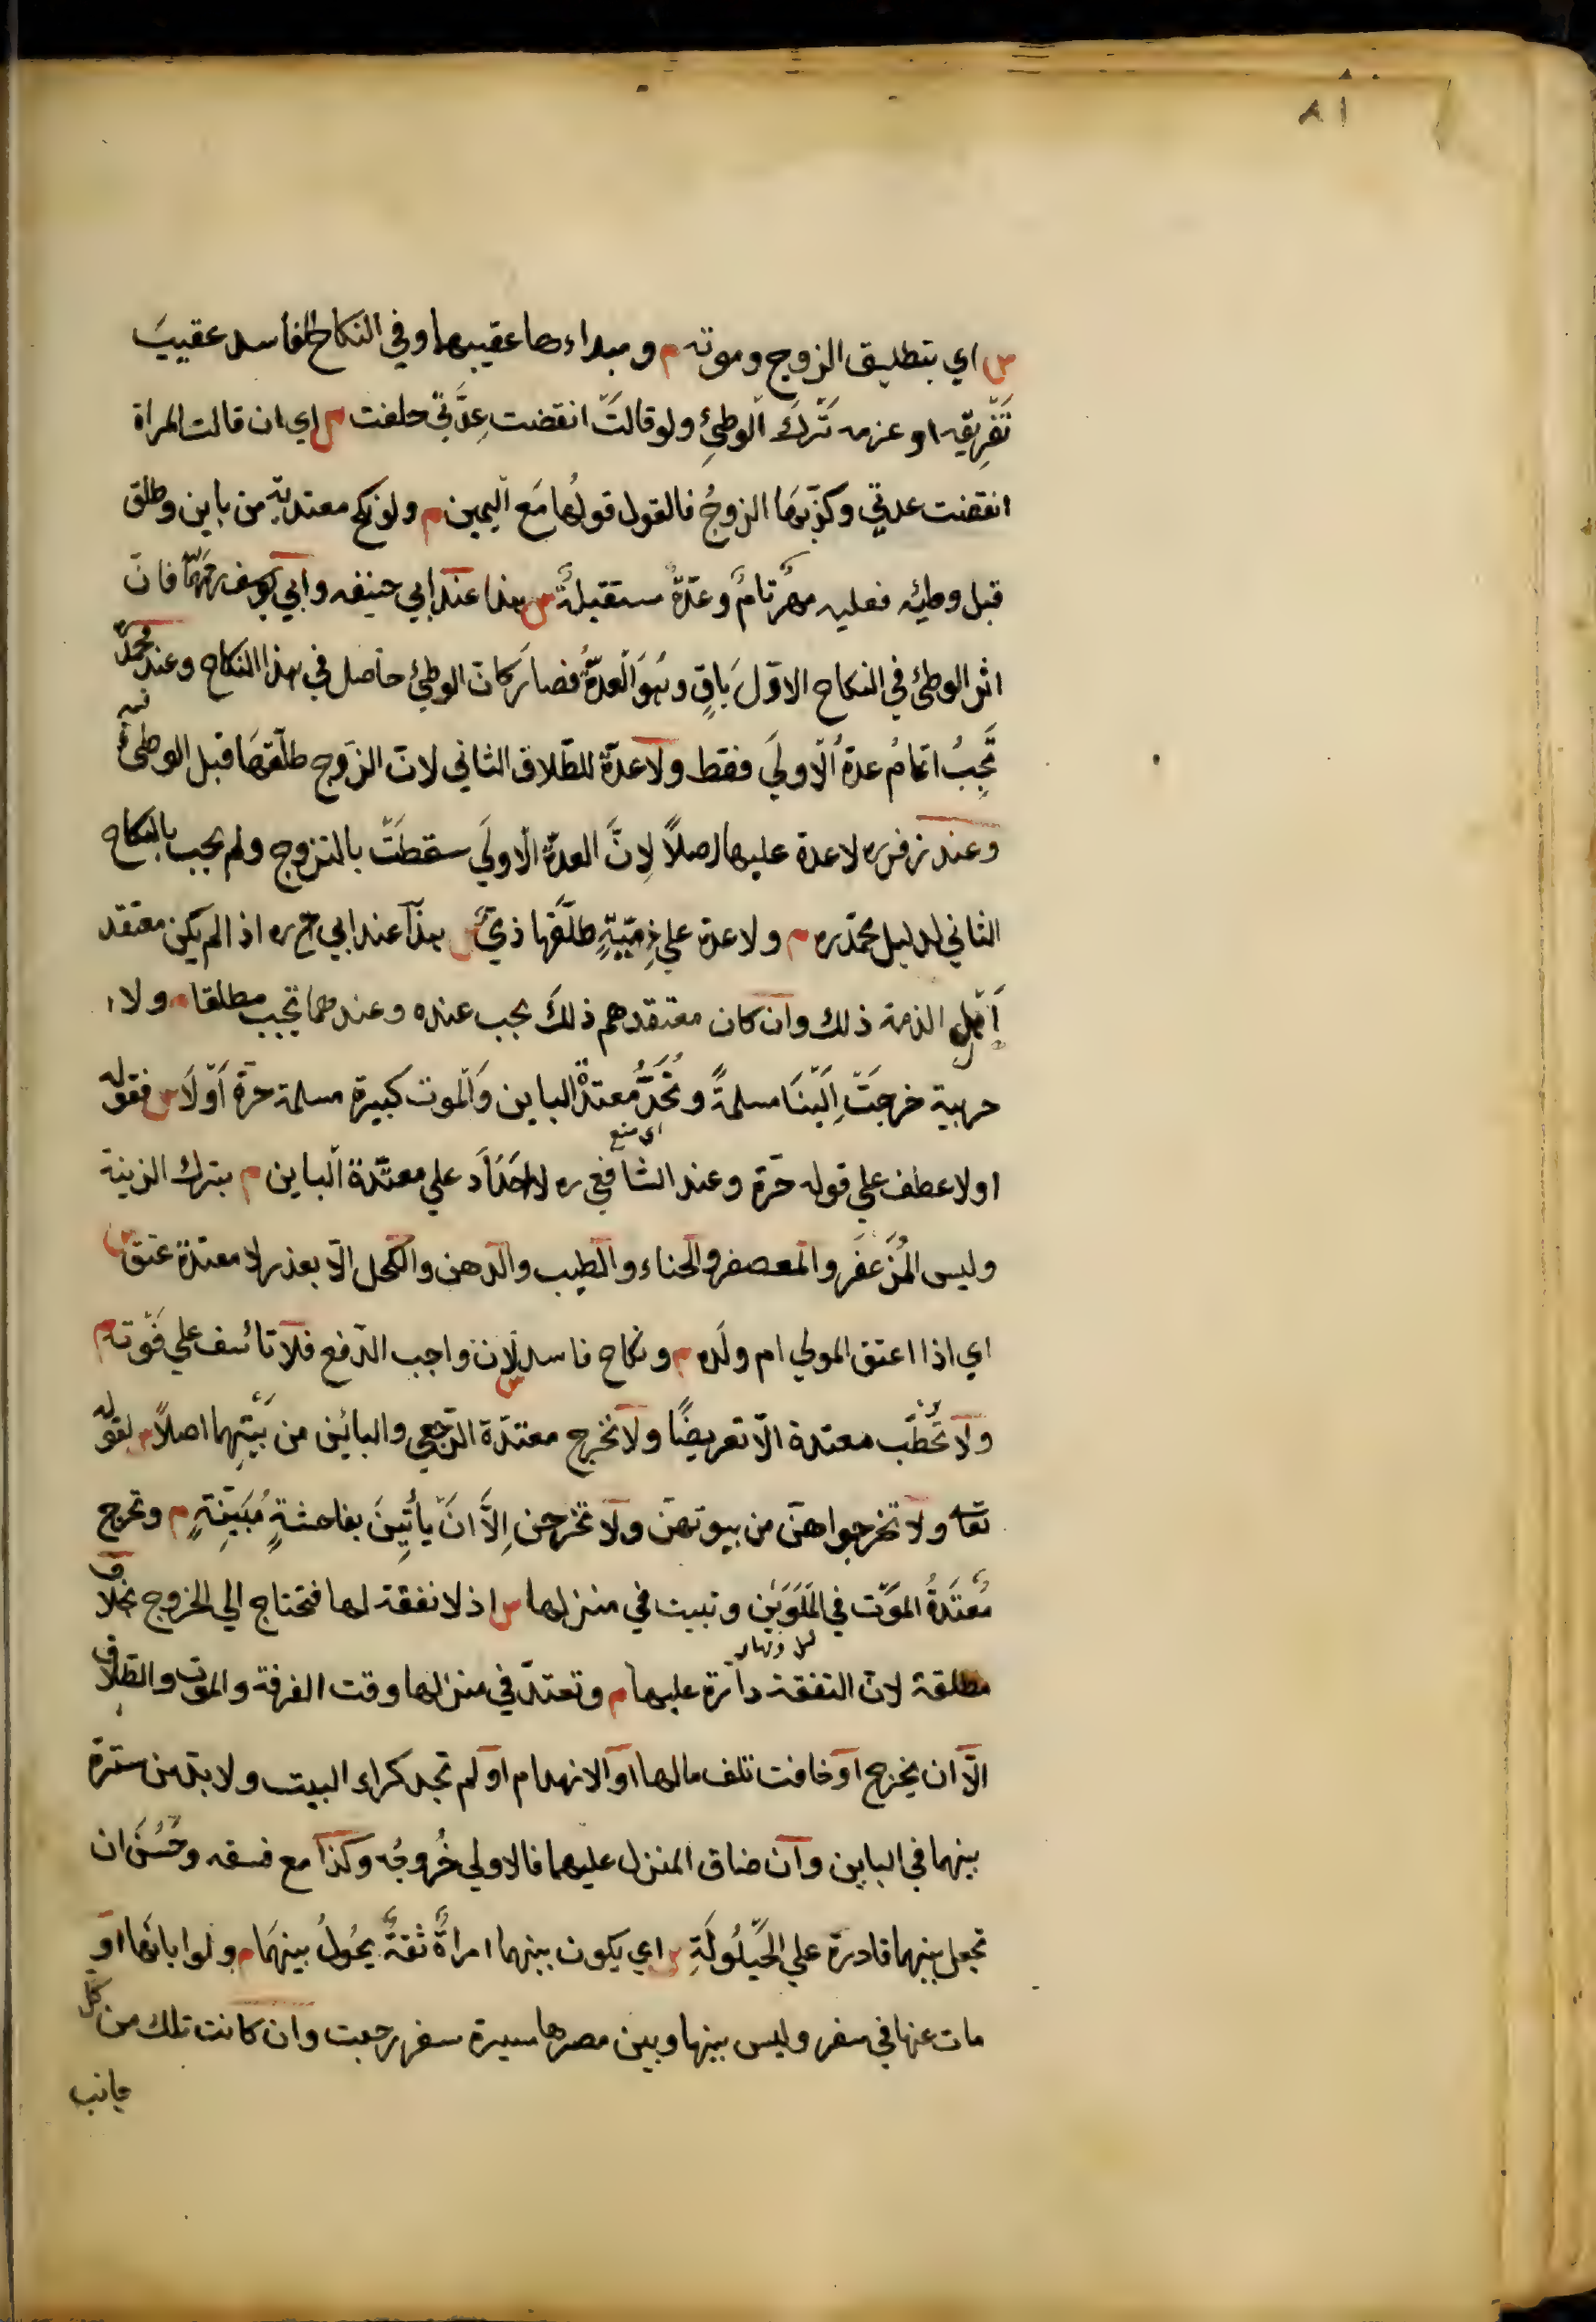 ٨١
س اي بتطليق الزوج وموته م ومبداءها عقيبهما وفي النكاح الفاسد عقيبَ
تَفْرِيقِه او عزمه تَرْكَ الوطئِ ولو قالتْ انقضت عِدَّتي حلفت س اي ان قالت المراة
انقضت عدتي وكذّبهَا الزوجُ فالقول قولُها مَع اليمين م ولو نكح معتدته من باين وطلق
قبل وطيه فعليه مهرٌ تامٌ وعدّةٌ مستقبلةٌ س هذا عند ابي حنيفه وابي يوسف رحمهما فان
اثر الوطئ في النكاح الاوّل بَاقٍ وهُوَ العدّةُ فصار كان الوطئ حاصل في هذا النكاح وعند محمد ره
تَجِبُ اتمامُ عدةُ الاولَي فقط ولا عدّةَ للطّلاق الثاني لان الزَوج طلّقهَا قبل الوطئ فيه
وعند زفر ره لا عدة عليها اصلاً لِانَّ العدةَ الاولَي سقطَتْ بالتزوج ولم يجب بالنكاح
الثاني لدليل محمّد ره م ولا عدة علي ذِمّيّةٍ طلّقها ذميٌّ س هذا عند ابي ح ره اذا لم يكن معتقد
اَهل الذمة ذلك وان كان معتقدهم ذلكَ يجب عنده وعندهما تجب مطلقا م ولا
حربية خرجَتْ اِلَيْنَا مسلمةً وتُحَدُّ مُعتدّةُ الباين وَالموت كبيرة مسلمة حرّة اَوْ لَا س فقوله
اي منع
اولا عطف علي قوله حرّة وعند الشافعي ره لا احدَاد علي معتدّة الباين م بترك الزينة
ولبس المُزَعْفَر والمعصفر والحناء والطيب والدهن والكحل الّا بعذر لا معتدّة عتق س
اي اذا اعتق المولي ام ولَده م ونكاح فاسد س لانه واجب الدّفع فلا تائسف علي فَوْته م
ولا تُخْطَب معتدة الّا تعريضًا ولا تخرج معتدّة الرّجعي والبائن من بَيْتِهما اصلاً س لقوله
تعا ولا تخرجواهنّ من بيوتهن ولا يخرجن اِلَّا انْ يأتِينَ بفاحشةٍ مُبَيِّنِةٍ م وتخرج
مُعتَدةُ الموْت في المَلَوَيْن وتبيت في منزلها س اذ لا نفقة لها فتحتاج الي الخروج بخلاف
ليل ونهار
مطلقة لان النفقة دارّة عليها م وتعتدّ في منزلها وقت الفرقة والموت والطلاق
الّا ان يخرج اَوْ خافت تلف مالها اَوْ الانهدام اَوْ لم تجد كراء البيت ولا بدّ من سترة
بينهما في الباين وان ضاق المنزل عليهما فالاولي خُروجُه وكذا مع فسقه وحُسُنَ ان
تجعل بينهما قادرة علي الحَيْلُولَةِ س اي يكون بينهما امراةٌ ثقةٌ يحُولُ بينهَما م ولو ابانَها اَوْ
مات عنها في سفر وليس بينها وبين مصرها مسيرة سفر رجعت وان كانت تلك من كل
جانب